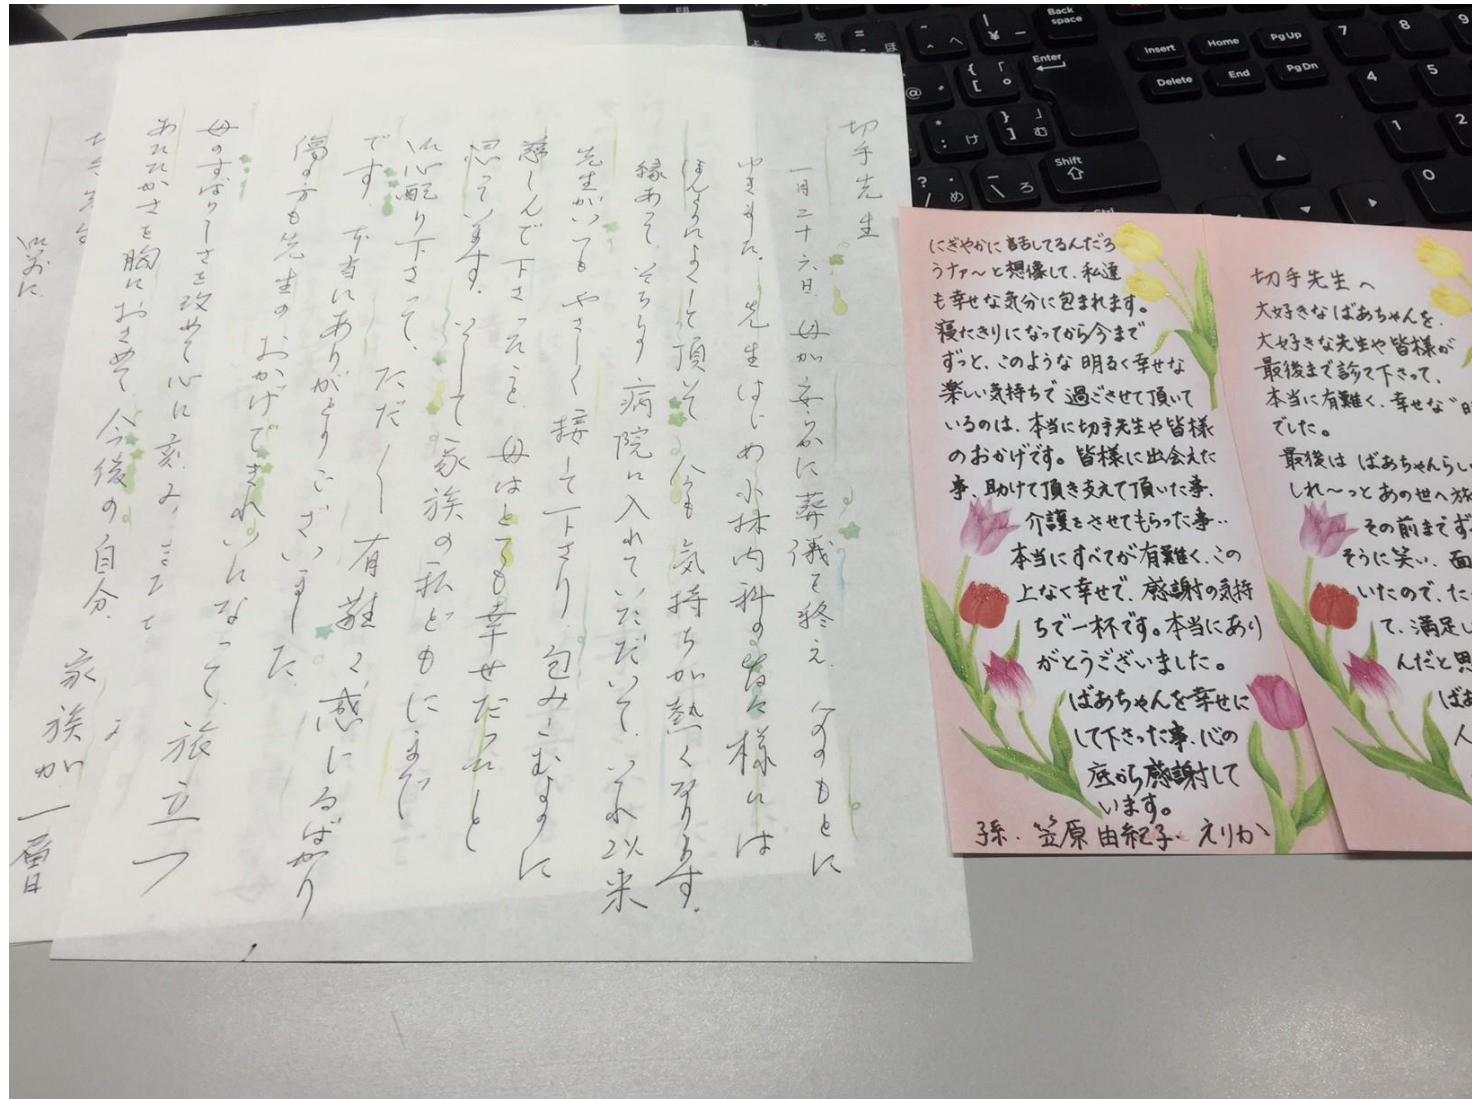 切手先生
一月二十六日、母が安らかに葬儀を終え、父のもとに
ゆきました。先生はじめ小林内科の皆々様には
ほんとによくして頂いて 今も気持ちが熱くなります。
縁あって、そちらの病院に入れていただいて、いれ以来
先生がいつもやさしく接して下さり 包みこむように
慈しんで下さったこと、母はとても幸せだったと
思っています。そして家族の私どもにまで
心配り下さって、ただ〱 有難く感じるばかり
です。本当にありがとうございました
傷の方も先生のおかげできれいになって、旅立つ
母のすばらしさを改めて心に刻み
あたたかさを胸におさめて 今後の自分、家族が一層
にぎやかに話してるんだろ
うナァ〜と想像して、私達
も幸せな気分に包まれます。
寝たきりになってから今まで
ずっと、このような明るく幸せな
楽しい気持ちで過ごさせて頂いて
いるのは、本当に切手先生や皆様
のおかげです。皆様に出会えた
事、助けて頂き支えて頂いた事、
介護をさせてもらった事‥
本当にすべてが有難く、この
上なく幸せで、感謝の気持
ちで一杯です。本当にあり
がとうございました。
ばあちゃんを幸せに
して下さった事、心の
底から感謝して
います。
孫、笠原由紀子、えりか
切手先生へ
大好きなばあちゃんを、
大好きな先生や皆様が
最後まで診て下さって、
本当に有難く、幸せな
でした。
最後は ばあちゃんらし
しれ〜っとあの世へ旅
その前までず
そうに笑い、面
いたので、た
て、満足し
んだと思
ばあ
人
Back space
Enter
Shift
Insert
Home
PgUp
Delete
End
PgDn
7
8
4
5
1
2
0